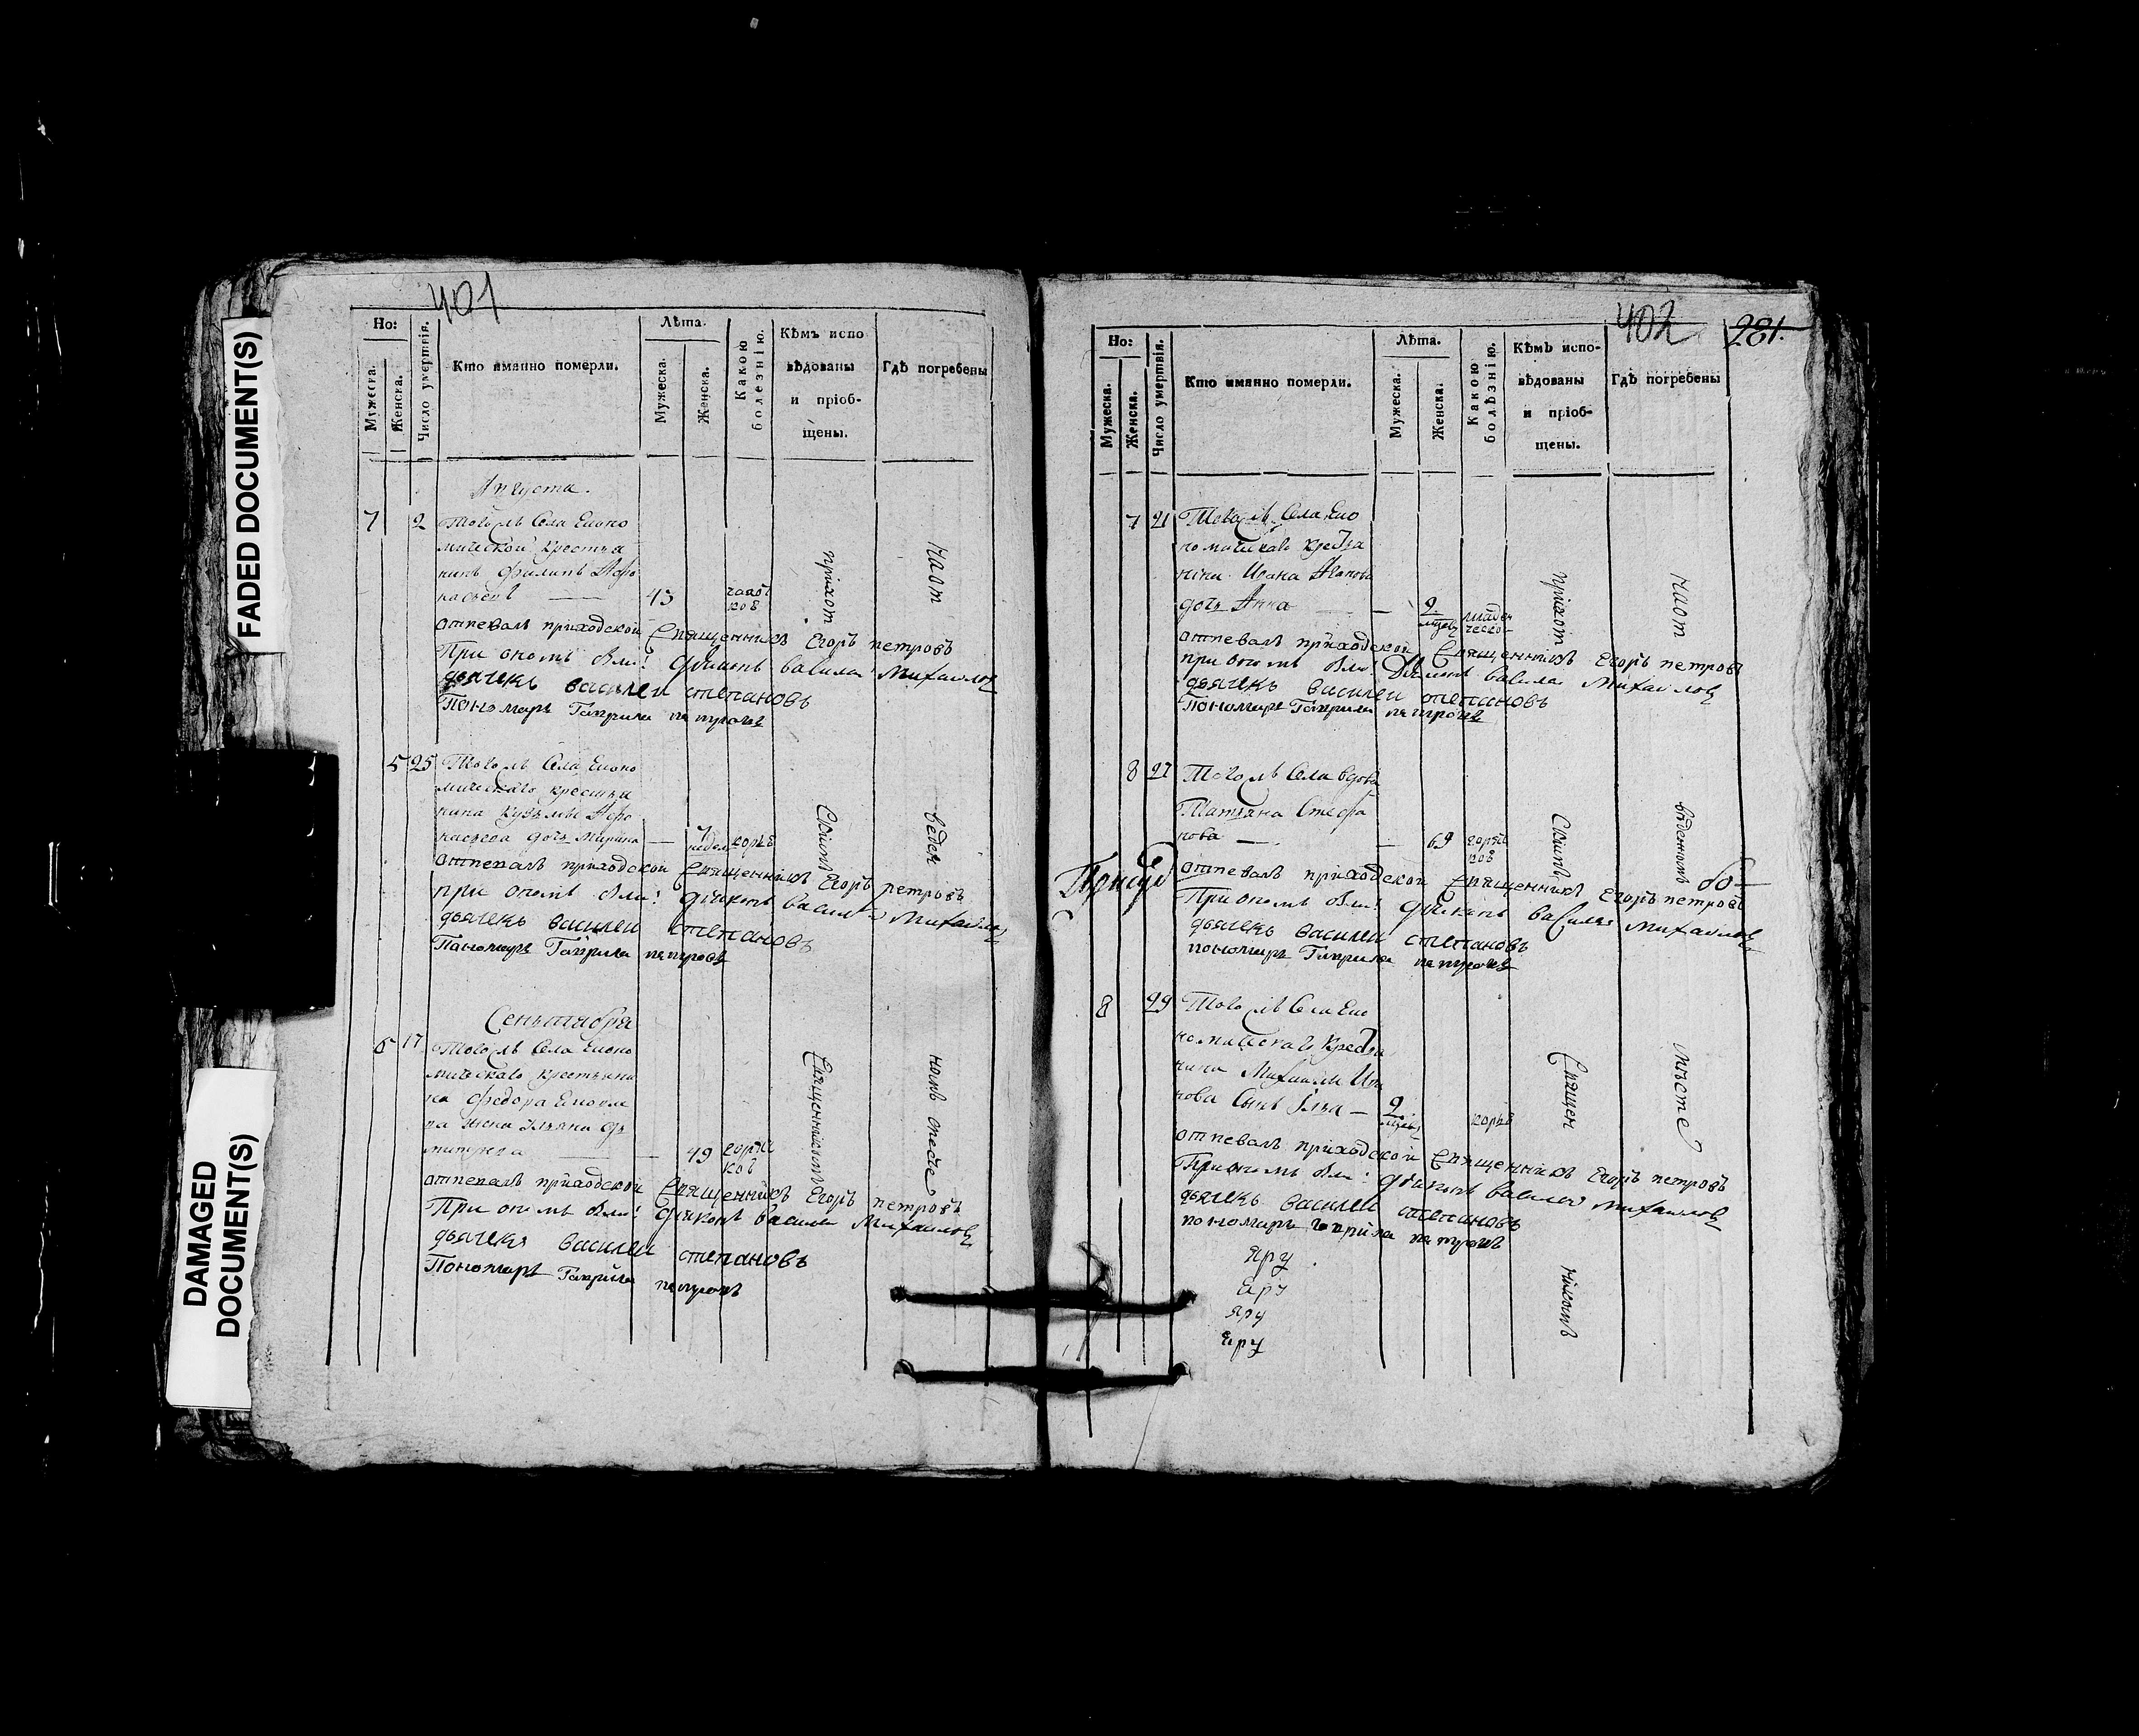 FADED DOCUMENT(S)
DAMAGED
DOCUMENT(S)
401
Но:
Мужеска.
Женска.
Число умертвія.
Кто имянно померли.
Лѣта.
Мужеска.
Женска.
Какою
болезнію.
Кѣмъ испо
вѣдованы
и пріоб-
щены.
Гдѣ погребены
Августа.
7 2 Тогожъ Села Еконо
мической крестья
нинъ Филипъ Афо
насьевъ — 43
отпевалъ приходской Священникъ Егоръ петровъ
При ономъ были: дияконъ василей Михаиловъ
дьячекъ василеи степановъ
Пономаръ Гаврила петровъ
5 25 Тогожъ Села Еконо
мическаго крестья
нина Кузьмы Афо
насьева дочь — недел
отпевалъ приходской Священникъ Егоръ петровъ
при ономъ были: дияконъ василей Михаиловъ
дьячекъ василеи степановъ
Пономаръ Гаврила петровъ
Сентября
6 17 Тогожъ Села Еконо
мическаго крестьяни
на Федора
жена Ульяна
— 49 горяч
кой
отпевалъ приходской Священникъ Егоръ петровъ
При ономъ были: дияконъ василей Михаиловъ
дьячекъ василеи степановъ
Пономаръ Гаврила петровъ
приход
Скимъ
Священникомъ
На от
веден
номъ месте
402
281.
Но:
Мужеска.
Женска.
Число умертвія.
Кто имянно померли.
Лѣта.
Мужеска.
Женска.
Какою
болѣзнію.
Кѣмъ испо-
вѣдованы
и пріоб-
щены.
Гдѣ погребены
7 21 Тогожъ Села Еко
номическаго крестья
нина Ивана Агапова
дочь Анна — младен
ческой
отпевалъ приходской Священникъ Егоръ петровъ
при ономъ были: Дияконъ василей Михаиловъ
дьячекъ василеи степановъ
Пономаръ Гаврила петровъ
8 27 Тогожъ Села вдова
Татьяна Стефа
нова — 69 горяч
кой
отпевалъ приходской Священникъ Егоръ петровъ
При ономъ были: дияконъ василей Михаиловъ
дьячекъ василеи степановъ
пономаръ Гаврила петровъ
8 29 Тогожъ Села Еко
номическаго крестья
нина Михаила Ива
нова Сынъ —
отпевалъ приходской Священникъ Егоръ петровъ
При ономъ были: дияконъ василей Михаиловъ
дьячекъ василеи степановъ
пономаръ Гаврила петровъ
приход
Скимъ
Священ
никомъ
На от
веденномъ
месте